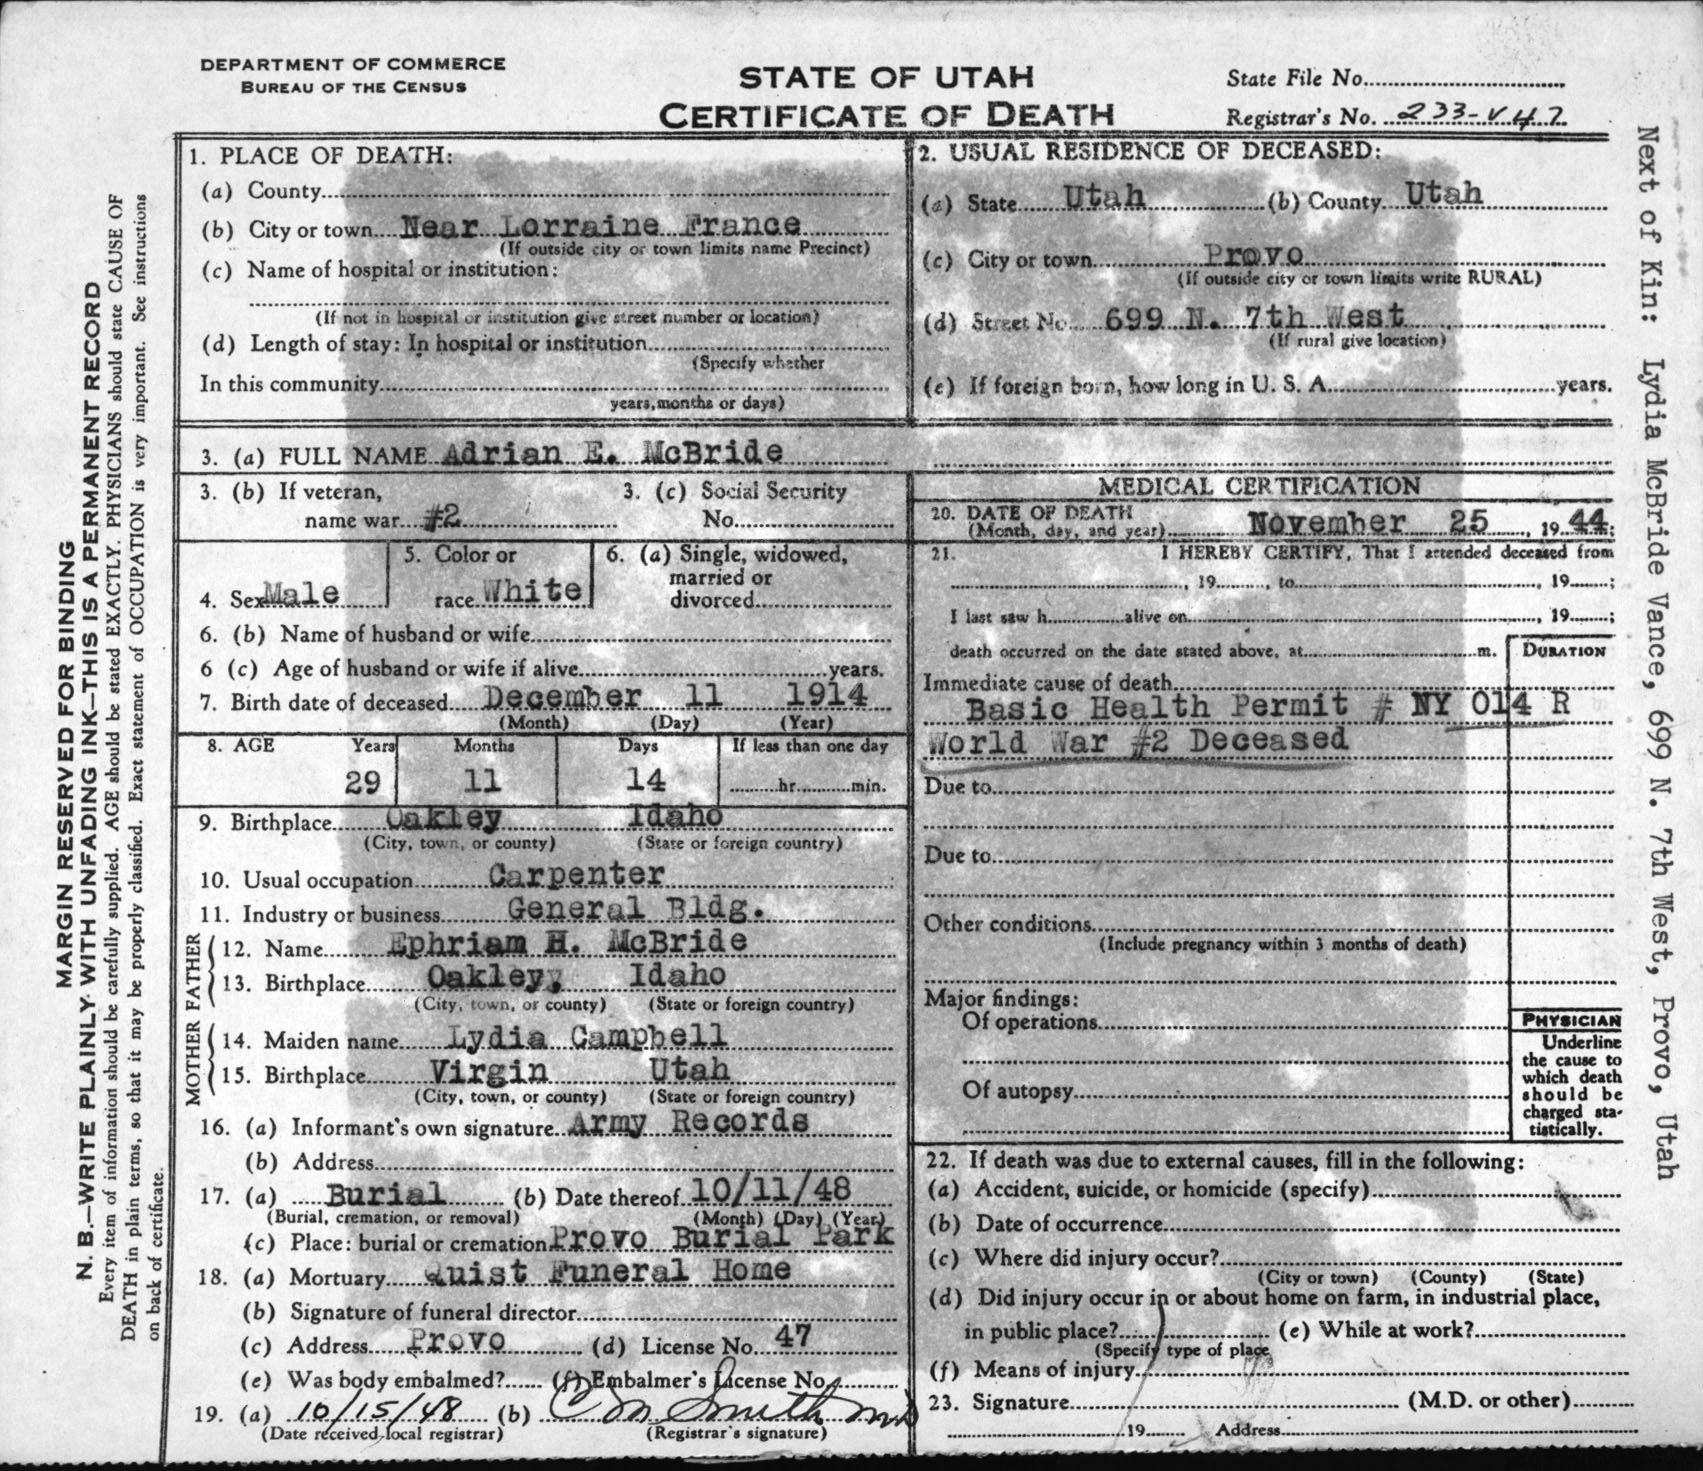 DEPARTMENT OF COMMERCE
BUREAU OF THE CENSUS
STATE OF UTAH
CERTIFICATE OF DEATH
State File No.
Registrar's No. 233-V47
MARGIN RESERVED FOR BINDING
N. B.—WRITE PLAINLY WITH UNFADING INK—THIS IS A PERMANENT RECORD.
Every item of information should be carefully supplied. AGE should be stated EXACTLY. PHYSICIANS should state CAUSE OF
DEATH in plain terms, so that it may be properly classified. Exact statement of OCCUPATION is very important. See instructions
on back of certificate.
1. PLACE OF DEATH:
(a) County
(b) City or town Near Lorraine France
(If outside city or town limits name Precinct)
(c) Name of hospital or institution:
(If not in hospital or institution give street number or location)
(d) Length of stay: In hospital or institution
(Specify whether
In this community
years, months or days)
2. USUAL RESIDENCE OF DECEASED:
(a) State Utah (b) County Utah
(c) City or town Provo
(If outside city or town limits write RURAL)
(d) Street No. 699 N. 7th West
(If rural give location)
(e) If foreign born, how long in U. S. A. years.
3. (a) FULL NAME Adrian E. McBride
3. (b) If veteran,
name war #2
3. (c) Social Security
No.
4. Sex Male
5. Color or
race White
6. (a) Single, widowed,
married or
divorced
6. (b) Name of husband or wife
6 (c) Age of husband or wife if alive years.
7. Birth date of deceased December 11 1914
(Month) (Day) (Year)
8. AGE Years Months Days If less than one day
29 11 14 hr. min.
9. Birthplace Oakley Idaho
(City, town, or county) (State or foreign country)
10. Usual occupation Carpenter
11. Industry or business General Bldg.
FATHER
12. Name Ephriam H. McBride
13. Birthplace Oakley, Idaho
(City, town, or county) (State or foreign country)
MOTHER
14. Maiden name Lydia Campbell
15. Birthplace Virgin Utah
(City, town, or county) (State or foreign country)
16. (a) Informant's own signature Army Records
(b) Address
17. (a) Burial (b) Date thereof 10/11/48
(Burial, cremation, or removal) (Month) (Day) (Year)
(c) Place: burial or cremation Provo Burial Park
18. (a) Mortuary Quist Funeral Home
(b) Signature of funeral director
(c) Address Provo (d) License No. 47
(e) Was body embalmed? (f) Embalmer's License No.
19. (a) 10/15/48 (b) C M Smith MD
(Date received local registrar) (Registrar's signature)
MEDICAL CERTIFICATION
20. DATE OF DEATH
(Month, day, and year) November 25, 1944;
21. I HEREBY CERTIFY, That I attended deceased from
, 19 , to , 19 ;
I last saw h alive on , 19 ;
death occurred on the date stated above, at m.
DURATION
Immediate cause of death
Basic Health Permit # NY 014 R
World War #2 Deceased
Due to
Due to
Other conditions
(Include pregnancy within 3 months of death)
Major findings:
Of operations
Of autopsy
PHYSICIAN
Underline
the cause to
which death
should be
charged sta-
tistically.
22. If death was due to external causes, fill in the following:
(a) Accident, suicide, or homicide (specify)
(b) Date of occurrence
(c) Where did injury occur?
(City or town) (County) (State)
(d) Did injury occur in or about home on farm, in industrial place,
in public place? (e) While at work?
(Specify type of place
(f) Means of injury
23. Signature (M.D. or other)
19 Address
Next of Kin: Lydia McBride Vance, 699 N. 7th West, Provo, Utah